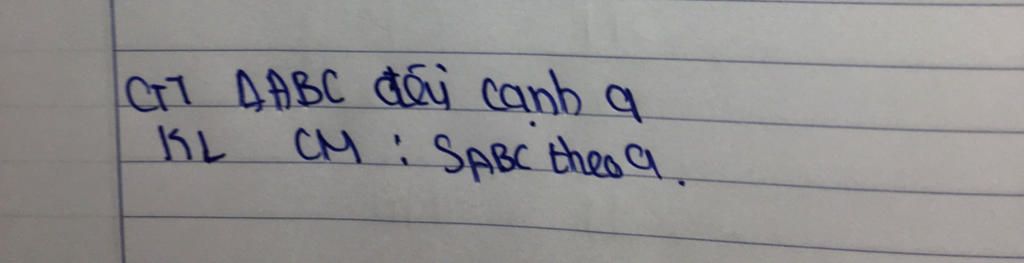 GT ΔABC đều cạnh a
KL CM : SABC theo a.